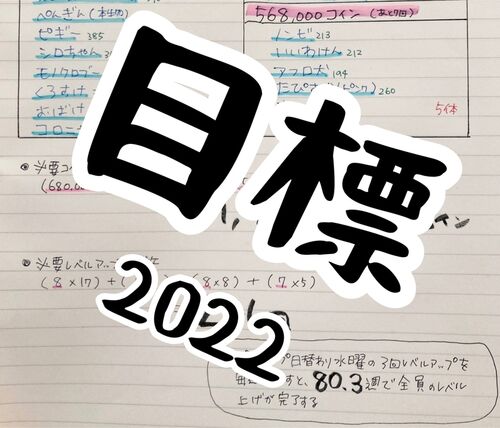 ぺんぎん
ピギー 385
シロちゃん
モノクロブー
くろすけ
おばけ
568,000コイン (あと7回)
ゾンビ 213
いいわけん 212
アフロ犬 194
260
5体
目標
2022
必要コ
(680,0
イン
必要レベルアップ
(8×17)+(
8×8)+(7×5)
日替わり水曜の3回レベルアップを
すと、80.3週で全員のレベル
上げが完了する